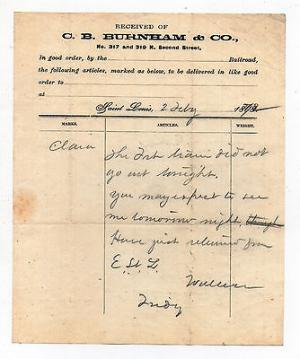 RECEIVED OF
C. B. BURNHAM & CO.,
No. 317 and 319 N. Second Street,
In good order, by the Railroad,
the following articles, marked as below, to be delivered in like good
order to
at
Saint Louis, 2 Feby 1873
MARKS. ARTICLES. WEIGHT.
Clara
The Frt train did not
go out tonight.
You may expect to see
me tomorrow night, though
Have just returned from
E. St. L.